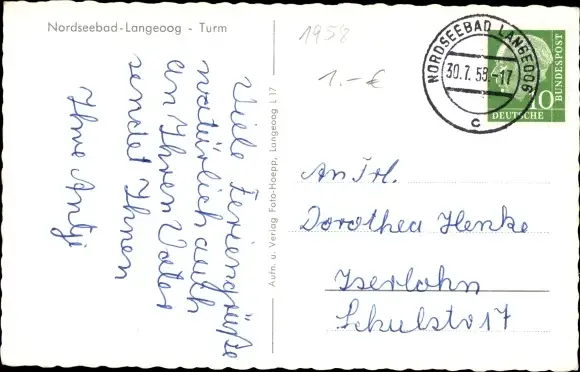 Nordseebad-Langeoog - Turm
Viele Feriengrüße
natürlich auch
an Ihren Vater
sendet Ihnen
Ihre Antje
Aufn. u. Verlag Foto-Hoepp, Langeoog L 17
1958
1.- €
NORDSEEBAD LANGEOOG
30.7.58.-17
c
10
DEUTSCHE
BUNDESPOST
An Frl.
Dorothea Henke
Iserlohn
Schulstr 17